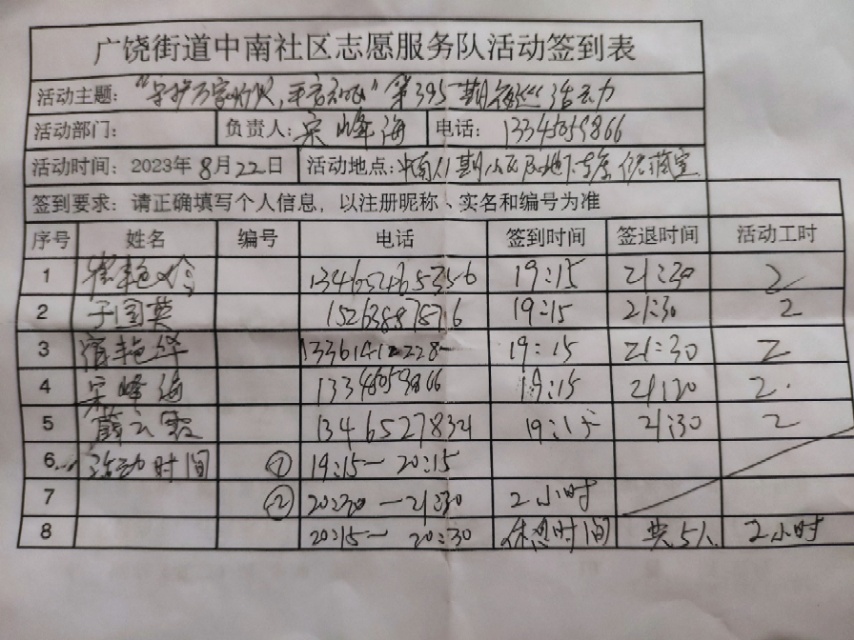 广饶街道中南社区志愿服务队活动签到表
活动主题："守护万家灯火,平安社区"第395期夜巡活动
活动部门： 负责人：宋峰海 电话：13345059866
活动时间：2023年8月22日 活动地点：中南八期小区及地下车库
签到要求：请正确填写个人信息，以注册昵称、实名和编号为准
序号 姓名 编号 电话 签到时间 签退时间 活动工时
1 19:15 21:30 2
2 于国英 19:15 21:30 2
3 艳华 19:15 21:30 2
4 宋峰海 19:15 2
5 薛云霞 13465278321 19:15 21:30 2
6 活动时间 ① 19:15— 20:15
7 ② 20:30 —21:30 2小时
8 20:15— 20:30 休息时间 共5人 2小时